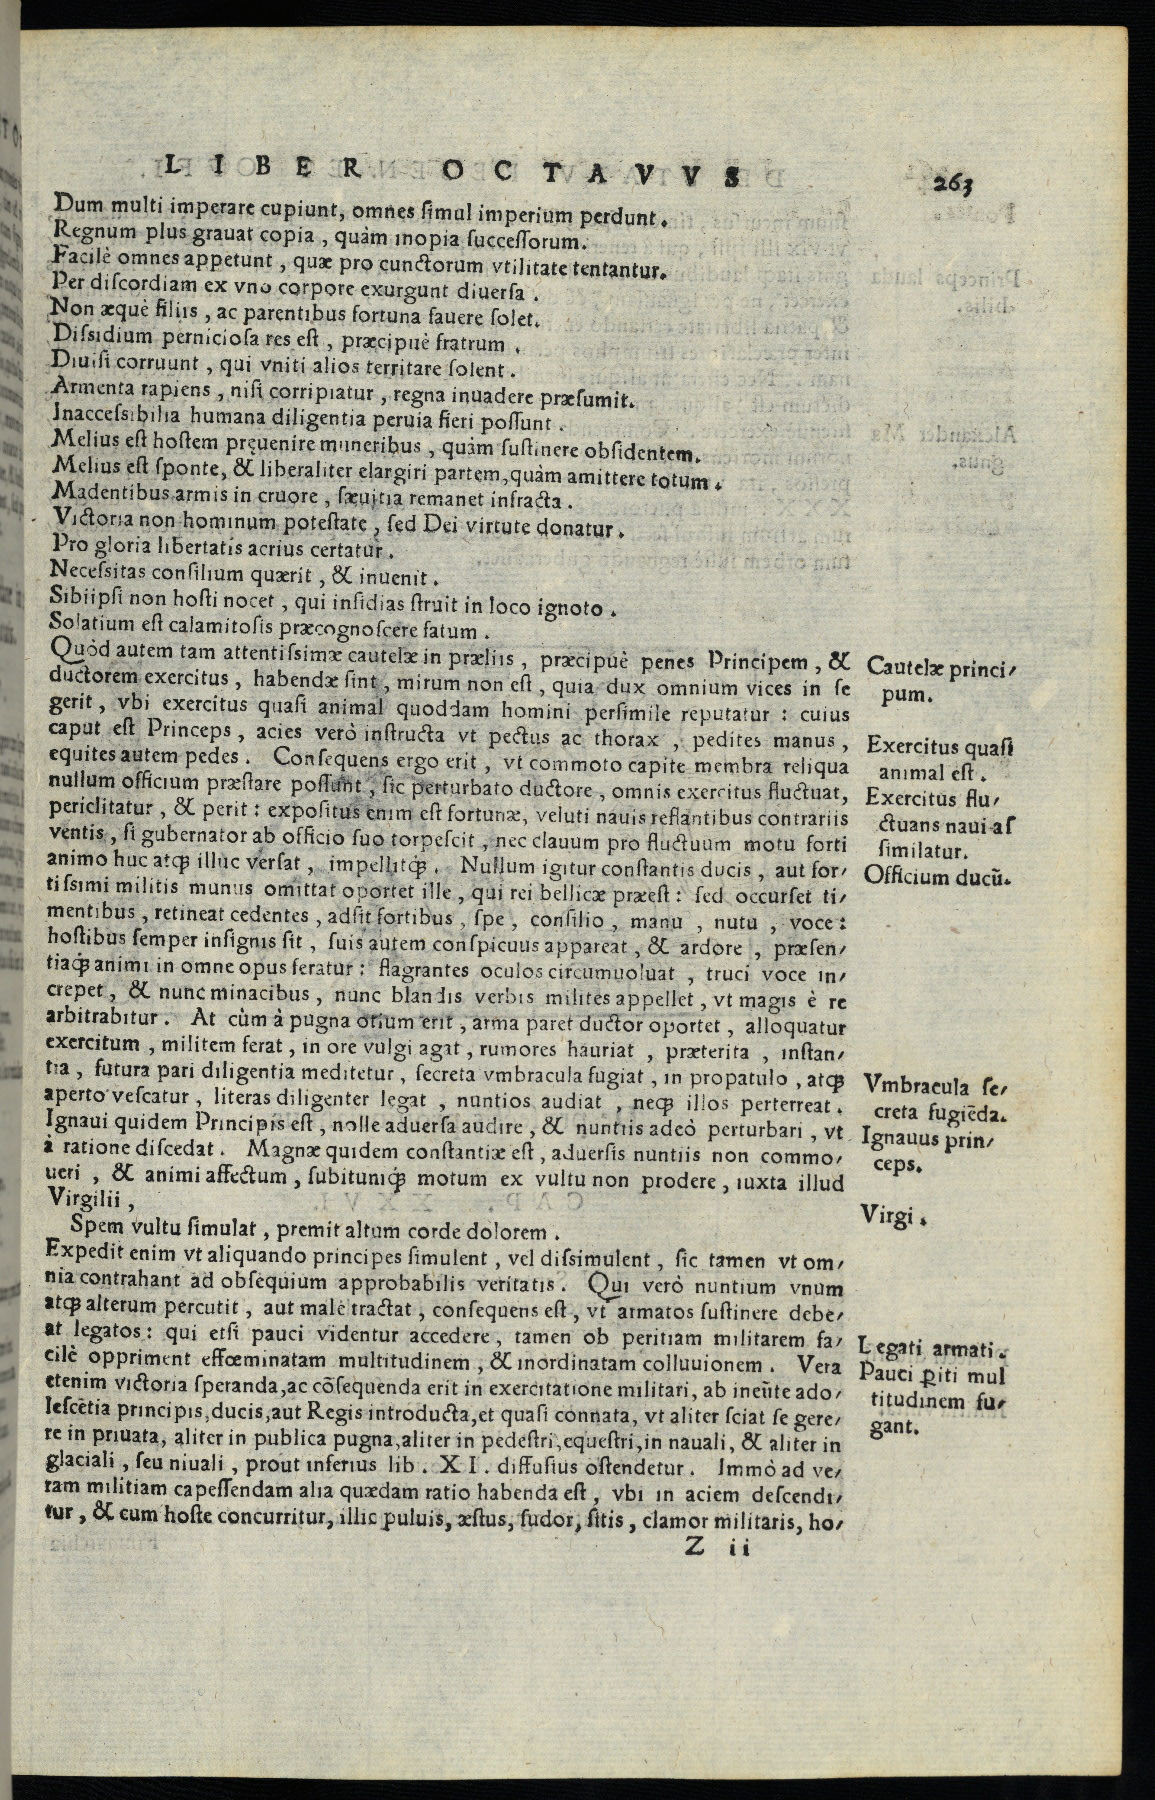 LIBER OCTAVVS 263
Dum multi imperare cupiunt, omnes simul imperium perdunt.
Regnum plus grauat copia, quàm inopia successorum.
Facilè omnes appetunt, quæ pro cunctorum vtilitate tentantur.
Per discordiam ex vno corpore exurgunt diuersa.
Non æquè filiis, ac parentibus fortuna fauere solet.
Dissidium perniciosa res est, præcipuè fratrum.
Diuisi corruunt, qui vniti alios territare solent.
Armenta rapiens, nisi corripiatur, regna inuadere præsumit.
Inaccessibilia humana diligentia peruia fieri possunt.
Melius est hostem pręuenire muneribus, quàm sustinere obsidentem.
Melius est sponte, & liberaliter elargiri partem, quàm amittere totum.
Madentibus armis in cruore, sæuitia remanet infracta.
Victoria non hominum potestate, sed Dei virtute donatur.
Pro gloria libertatis acrius certatur.
Necessitas consilium quærit, & inuenit.
Sibiipsi non hosti nocet, qui insidias struit in loco ignoto.
Solatium est calamitosis præcognoscere fatum.
Quòd autem tam attentissimæ cautelæ in præliis, præcipuè penes Principem, &
ductorem exercitus, habendæ sint, mirum non est, quia dux omnium vices in se
gerit, vbi exercitus quasi animal quoddam homini persimile reputatur: cuius
caput est Princeps, acies verò instructa vt pectus ac thorax, pedites manus,
equites autem pedes. Consequens ergo erit, vt commoto capite membra reliqua
nullum officium præstare possunt, sic perturbato ductore, omnis exercitus fluctuat,
periclitatur, & perit: expositus enim est fortunæ, veluti nauis reflantibus contrariis
ventis, si gubernator ab officio suo torpescit, nec clauum pro fluctuum motu forti
animo huc atq; illuc versat, impellitq;. Nullum igitur constantis ducis, aut for-
tissimi militis munus omittat oportet ille, qui rei bellicæ præest: sed occurset ti-
mentibus, retineat cedentes, adsit fortibus, spe, consilio, manu, nutu, voce:
hostibus semper insignis sit, suis autem conspicuus appareat, & ardore, præsen-
tiaq; animi in omne opus feratur: flagrantes oculos circumuoluat, truci voce in-
crepet, & nunc minacibus, nunc blandis verbis milites appellet, vt magis è re
arbitrabitur. At cùm à pugna otium erit, arma paret ductor oportet, alloquatur
exercitum, militem ferat, in ore vulgi agat, rumores hauriat, præterita, instan-
tia, futura pari diligentia meditetur, secreta vmbracula fugiat, in propatulo, atq;
aperto vescatur, literas diligenter legat, nuntios audiat, neq; illos perterreat.
Ignaui quidem Principis est, nolle aduersa audire, & nuntiis adeò perturbari, vt
à ratione discedat. Magnæ quidem constantiæ est, aduersis nuntiis non commo-
ueri, & animi affectum, subitumq; motum ex vultu non prodere, iuxta illud
Virgilii,
Spem vultu simulat, premit altum corde dolorem.
Expedit enim vt aliquando principes simulent, vel dissimulent, sic tamen vt om-
nia contrahant ad obsequium approbabilis veritatis. Qui verò nuntium vnum
atq; alterum percutit, aut malè tractat, consequens est, vt armatos sustinere debe-
at legatos: qui etsi pauci videntur accedere, tamen ob peritiam militarem fa-
cilè oppriment effœminatam multitudinem, & inordinatam colluuionem. Vera
etenim victoria speranda, ac cõsequenda erit in exercitatione militari, ab ineũte ado-
lescẽtia principis, ducis, aut Regis introducta, et quasi connata, vt aliter sciat se gere-
re in priuata, aliter in publica pugna, aliter in pedestri, equestri, in nauali, & aliter in
glaciali, seu niuali, prout inferius lib. XI. diffusius ostendetur. Immò ad ve-
ram militiam capessendam alia quædam ratio habenda est, vbi in aciem descendi-
tur, & cum hoste concurritur, illic puluis, æstus, sudor, sitis, clamor militaris, ho-
Z ii
Cautelæ princi-
pum.
Exercitus quasi
animal est.
Exercitus flu-
ctuans naui as
similatur.
Officium ducũ.
Vmbracula se-
creta fugiẽda.
Ignauus prin-
ceps.
Virgi.
Legati armati.
Pauci ꝑiti mul
titudinem fu-
gant.